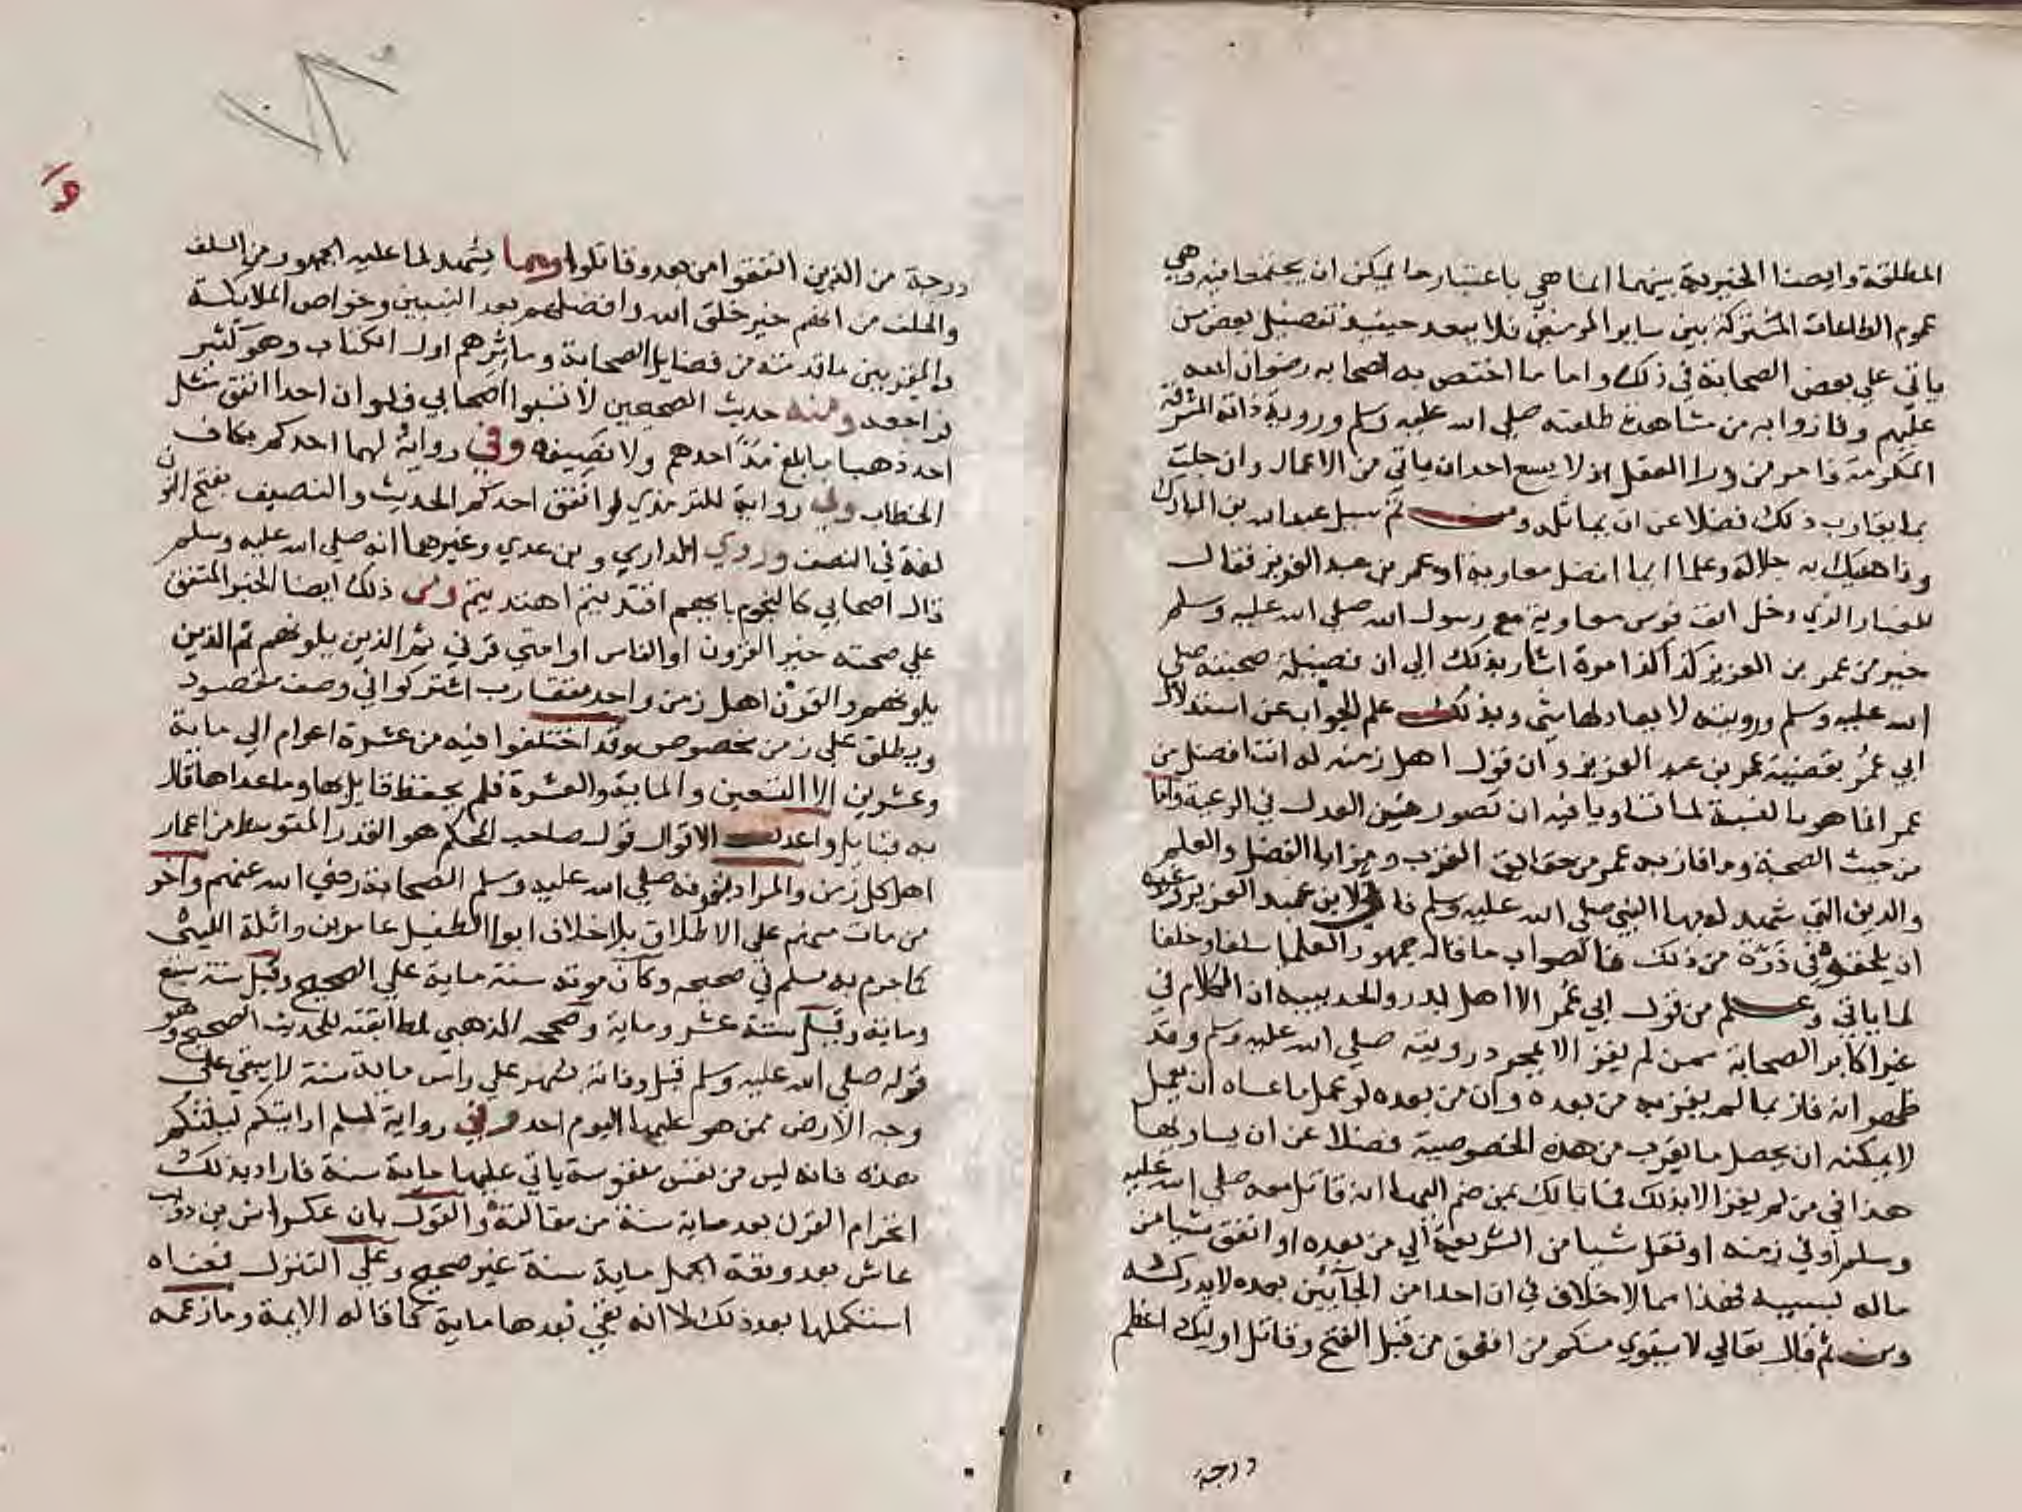 المطلقة وايضا الخيرية بينهما انما هي باعتبار ما يمكن ان يجتمعا فيه وهي
عموم الطاعات المشتركة بين ساير المومنين فلا يبعد حينيذ تفضيل بعض من
ياتي علي بعض الصحابة في ذلك واما ما اختص به الصحابه رضوان الله
عليهم وفازوا به من مشاهدة طلعته صلي الله عليه وسلم ورويه ذاته المشرفة
المكرمة فامر من ورا العقل اذ لا يسع احد ان ياتي من الاعمال وان جلت
بما يقارب ذلك فضلا عن ان يماثله ومن ثم سيل عبد الله بن المبارك
وناهيك به جلالة وعلما ايما افضل معاوية او عمر بن عبد العزيز فقال
للغبار الذي دخل انف فرس معاوية مع رسول الله صلي الله عليه وسلم
خير من عمر بن العزيز كذا كذا مرة اشار بذلك الي ان فضيلة صحبته صلي
الله عليه وسلم ورويته لا يعادلها شي وبذلك علم الجواب عن استدلال
ابي عمر بقضية عمر بن عبد العزيز وان قول اهل زمنه له انت افضل من
عمر انما هو بالنسبة لما تساويا فيه ان تصور من العدل في الرعية واما
من حيث الصحبة وما فاز به عمر من حقايق القرب ومزايا الفضل والعلم
والدين التي شهد له بها النبي صلي الله عليه وسلم فاني لابن عبد العزيز وغيره
ان يلحقه في ذرة من ذلك فالصواب ما قاله جمهور العلما سلفا وخلفا
لما ياتي وعلم من قول ابي عمر الا اهل بدر والحديبيه ان الكلام في
غير اكابر الصحابة ممن لم يفز الا بمجرد رويته صلي الله عليه وسلم وقد
ظهر انه فاز بما لم يفز به من بعده وان من بعده لو عمل ما عساه ان يعمل
لا يمكنه ان يحصل ما يقرب من هذه الخصوصية فضلا عن ان يساويها
هذا في من لم يفز الا بذلك فما بالك بمن ضم اليها انه قاتل معه صلي الله عليه
وسلم او في زمنه او نقل شيا من الشريعة الي من بعده او انفق شيا من
ماله بسببه فهذا مما لا خلاف في ان احدا من الجآئين بعده لا يدركه
ومن ثم قال تعالي لا يستوي منكم من انفق من قبل الفتح وقاتل اوليك اعظم
درجة
درجة من الذين انفقوا من بعد وقاتلوا ومما يشهد لما عليه الجمهور من السلف
والخلف من انهم خير خلق الله وافضلهم بعد النبيين وخواص الملايكة
والمقربين ما قدمته من فضايل الصحابة وماثرهم اول الكتاب وهو كثير
فراجعه ومنه حديث الصحيحين لا تسبوا اصحابي فلو ان احدا انفق مثل
احد ذهبا ما بلغ مدا احدهم ولا نصيفه وفي رواية لهما احدكم بكاف
الخطاب وفي رواية للترمذي لو انفق احدكم الحديث والنصيف بفتح النون
لغة في النصف وروي الداري وبن عدي وغيرهما انه صلي الله عليه وسلم
قال اصحابي كالنجوم بايهم اقتديتم اهتديتم ومن ذلك ايضا الخبر المتفق
علي صحته خير القرون او الناس او امتي قرني ثم الذين يلونهم ثم الذين
يلونهم والقرن اهل زمن واحد متقارب اشتركوا في وصف مقصود
ويطلق علي زمن مخصوص وقد اختلفوا فيه من عشرة اعوام الي ماية
وعشرين الا التسعين والماية والعشرة فلم يحفظ قايل بها وما عداها قال
به قايل واعدل الاقوال قول صاحب المحكم هو القدر المتوسط من اعمار
اهل كل زمن والمراد بقرنه صلي الله عليه وسلم الصحابة رضي الله عنهم واخر
من مات منهم علي الاطلاق بلا خلاف ابوا الطفيل عامر بن واثلة الليثي
كما جزم به مسلم في صحيحه وكان موته سنة ماية علي الصحيح وقيل سنة سبع
وماية وقيل ستة عشر وماية وصححه الذهبي لمطابقته للحديث الصحيح وهو
قوله صلي الله عليه وسلم قبل وفاته بشهر علي راس ماية سنة لا يبقي علي
وجه الارض ممن هو عليها اليوم احد وفي رواية لمسلم ارايتكم ليلتكم
هذه فانه ليس من نفس منفوسة ياتي عليها ماية سنة فاراد بذلك
انخرام القرن بعد ماية سنة من مقالته والقول بان عكراش بن دويب
عاش بعد وقعة الجمل ماية سنة غير صحيح وعلي التنزل فمعناه
استكملها بعد ذلك لا انه بقي بعدها ماية كما قاله الايمة وما زعمه